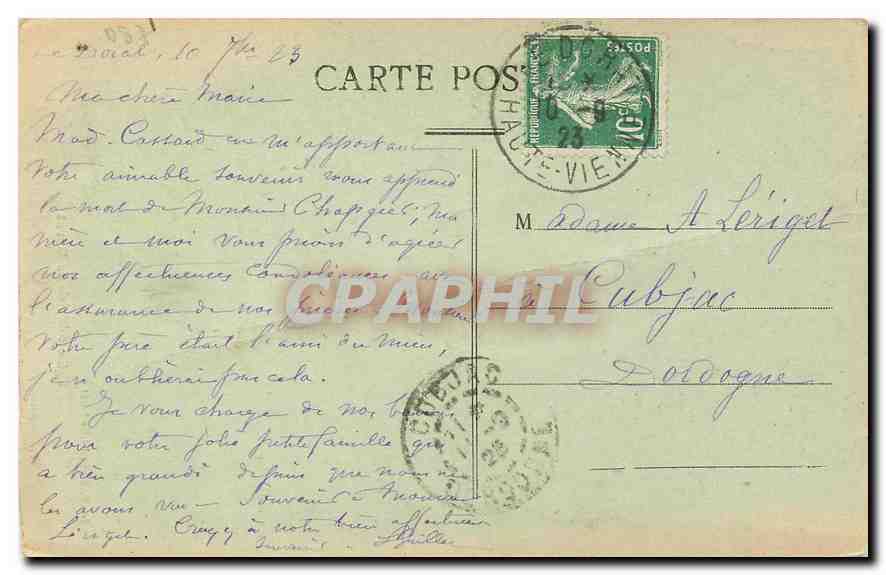 Le Dorat, 10 7bre 23
CARTE POST
Ma chère Marie
Mad. en m'apportant
Votre aimable souvenir nous apprend
la mort de Monsieur ma
mère et moi vous prions d'agréer
nos affectueuses condoléances avec
l'assurance de nos
Votre père était l'ami du mien,
je n'oublierai pas cela.
Je vous charge de nos
pour votre jolie petite famille qui
a bien grandi depuis que nous ne
les avons vus - Souvenir à Monsieur
Lériget. Croyez à notre bien affectueux
souvenir -
M adame A Lériget
à Cubjac
Dordogne
POSTES
REPUBLIQUE FRANÇAISE
10c
DORAT
9
23
HAUTE-VIENNE
CUBJAC
CPAPHIL